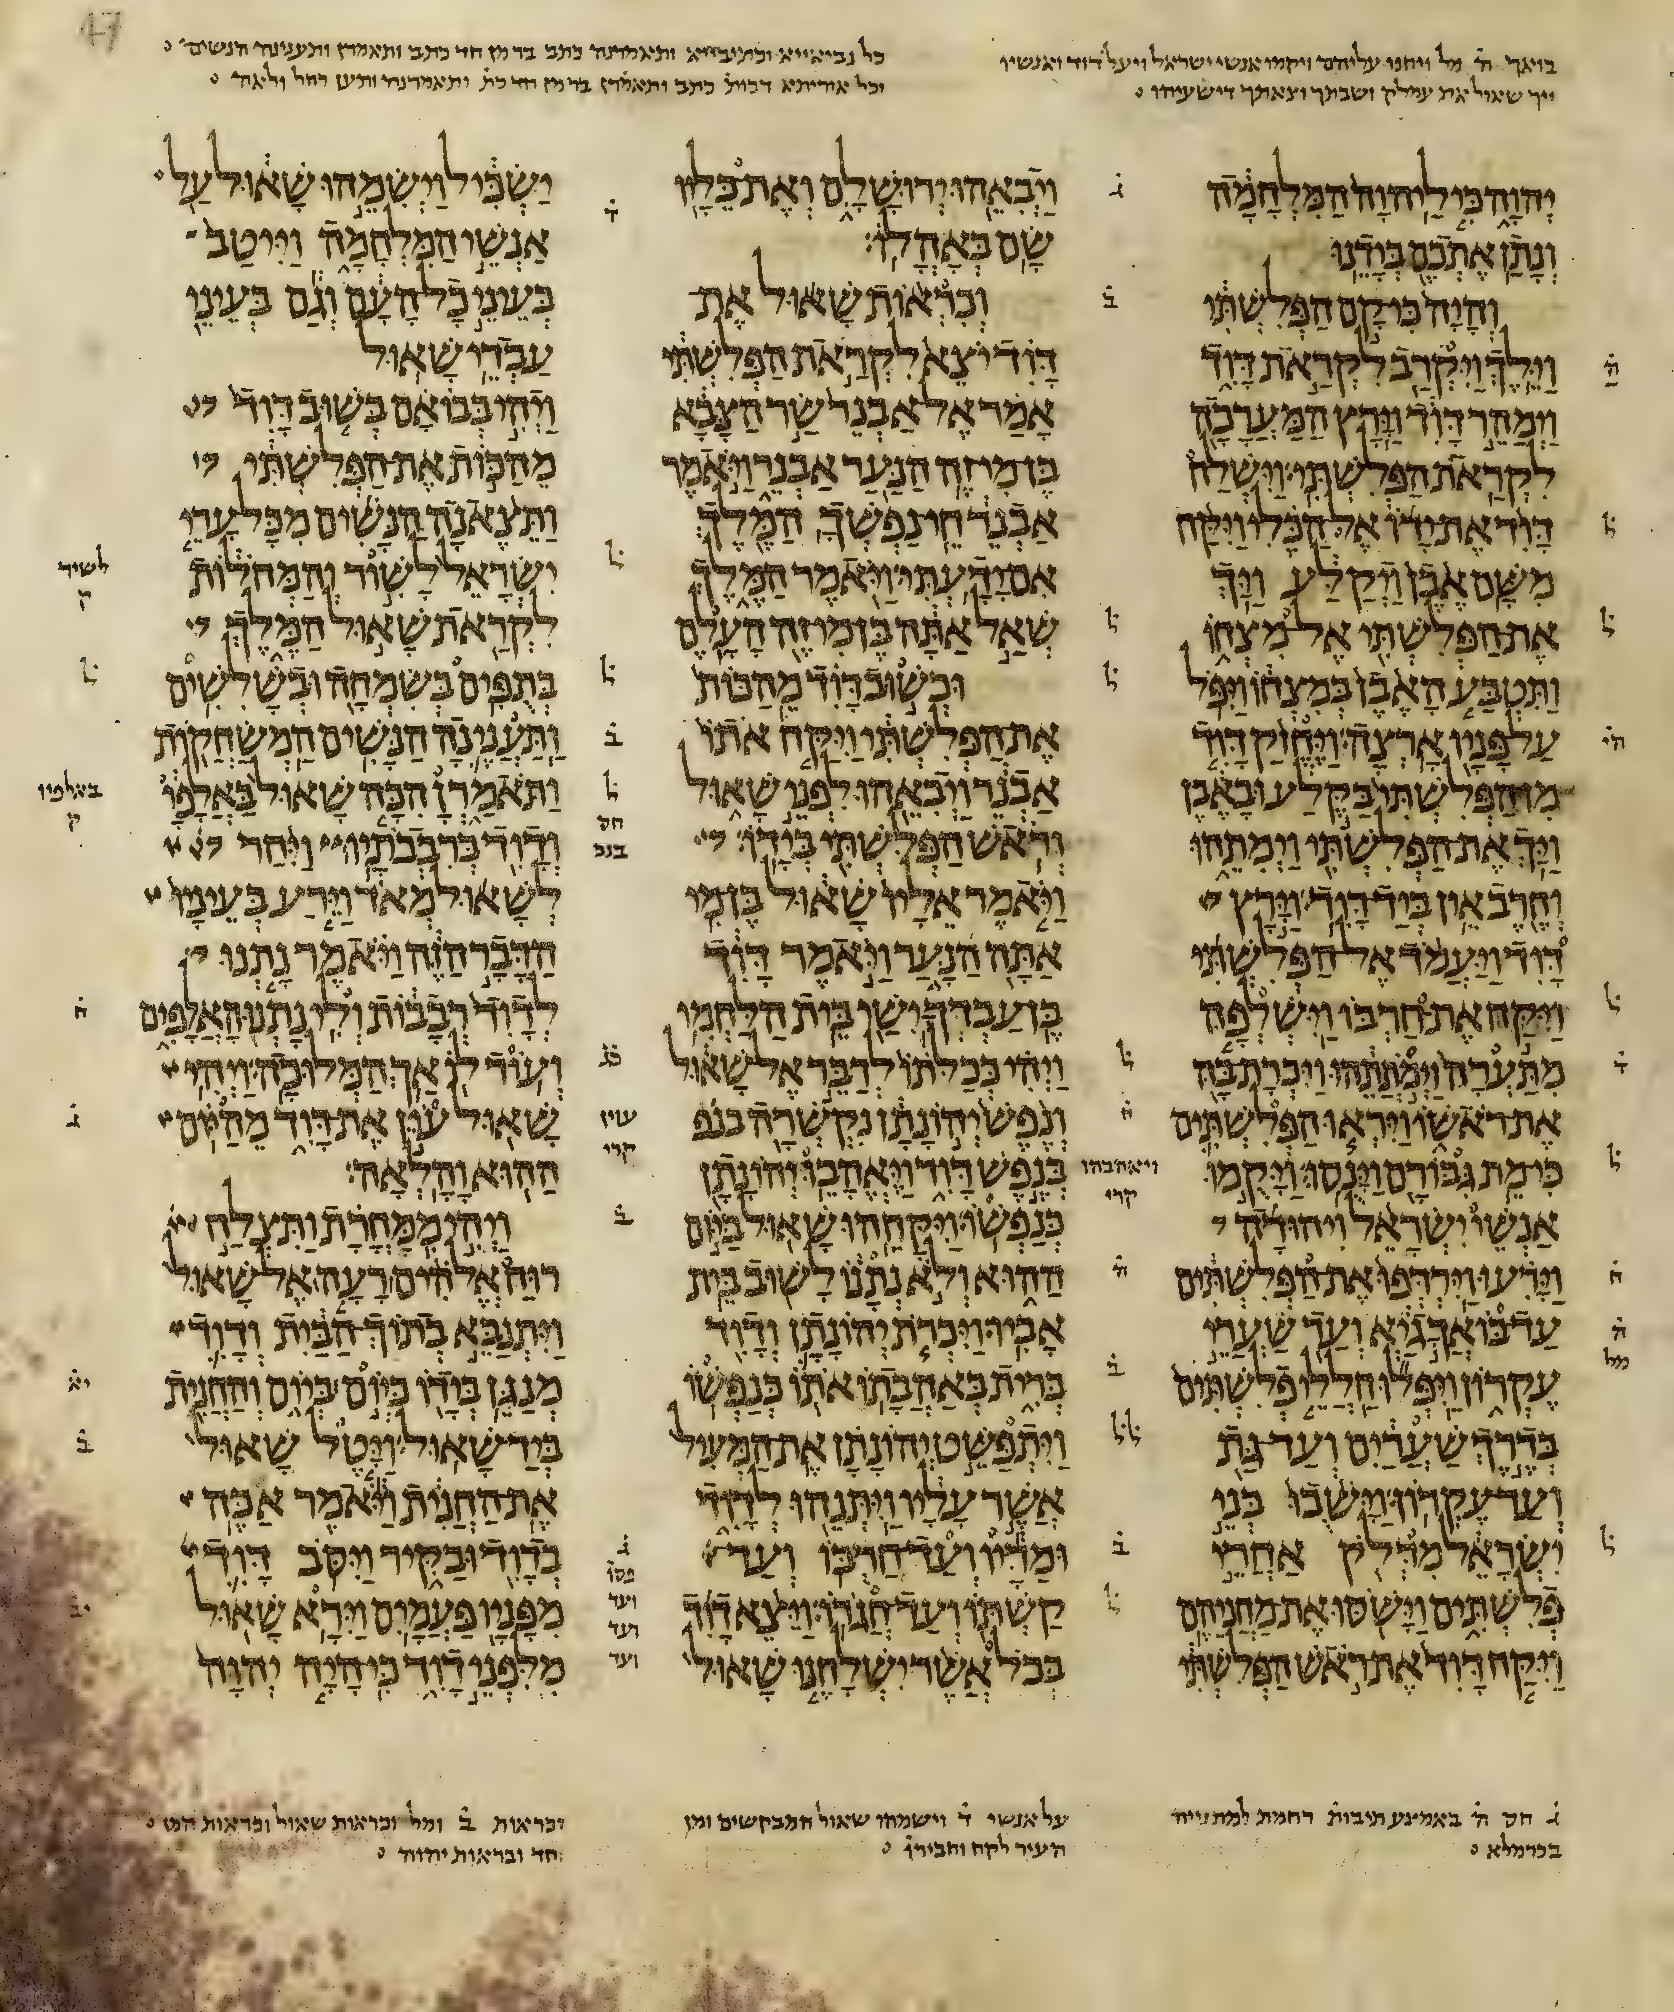 כל נביאייא וכתיבייא ותאמרנה כתב בר מן חד כתב ותאמרן ותענינה הנשים
וכל אוריתא דכות כתב ותאמרן בר מן חד כת ותאמרנה ותען רחל ולאה
ה מל ויחנו עליהם ויקמו אנשי ישראל ויעל דוד ואנשיו
ויך שאול את עמלק ושבתך וצאתך דישעיהו
יהוה כי ליהוה המלחמה
ונתן אתכם בידנו
והיה כי קם הפלשתי
וילך ויקרב לקראת דוד
וימהר דוד וירץ המערכה
לקראת הפלשתי וישלח
דוד את ידו אל הכלי ויקח
משם אבן ויקלע ויך
את הפלשתי אל מצחו
ותטבע האבן במצחו ויפל
על פניו ארצה ויחזק דוד
מן הפלשתי בקלע ובאבן
ויך את הפלשתי וימתהו
וחרב אין ביד דוד וירץ
דוד ויעמד אל הפלשתי
ויקח את חרבו וישלפה
מתערה וימתתהו ויכרת בה
את ראשו ויראו הפלשתים
כי מת גבורם וינסו ויקמו
אנשי ישראל ויהודה
וירעו וירדפו את הפלשתים
עד בואך גיא ועד שערי
עקרון ויפלו חללי פלשתים
בדרך שערים ועד גת
ועד עקרון וישבו בני
ישראל מדלק אחרי
פלשתים וישסו את מחניהם
ויקח דוד את ראש הפלשתי
ויבאהו ירושלם ואת כליו
שם באהלו
וכראות שאול את
דוד יצא לקראת הפלשתי
אמר אל אבנר שר הצבא
בן מי זה הנער אבנר ויאמר
אבנר חי נפשך המלך
אם ידעתי ויאמר המלך
שאל אתה בן מי זה העלם
וכשוב דוד מהכות
את הפלשתי ויקח אתו
אבנר ויבאהו לפני שאול
וראש הפלשתי בידו
ויאמר אליו שאול בן מי
אתה הנער ויאמר דוד
בן עבדך ישי בית הלחמי
ויהי ככלתו לדבר אל שאול
ונפש יהונתן נקשרה בנפ
בנפש דוד ויאהבו יהונתן
כנפשו ויקחהו שאול ביום
ההוא ולא נתנו לשוב בית
אביו ויכרת יהונתן ודוד
ברית באהבתו אתו כנפשו
ויתפשט יהונתן את המעיל
אשר עליו ויתנהו לדוד
ומדיו ועד חרבו ועד
קשתו ועד חגרו ויצא דוד
בכל אשר ישלחנו שאול
ישכיל וישמהו שאול על
אנשי המלחמה וייטב
בעיני כל העם וגם בעיני
עבדי שאול
ויהי בבואם בשוב דוד
מהכות את הפלשתי
ותצאנה הנשים מכל ערי
ישראל לשור והמחלות
לקראת שאול המלך
בתפים בשמחה ובשלשים
ותענינה הנשים המשחקות
ותאמרן הכה שאול באלפו
ודוד ברבבתיו ויחר
לשאול מאד וירע בעיניו
הדבר הזה ויאמר נתנו
לדוד רבבות ולי נתנו האלפים
ועוד לו אך המלוכה ויהי
שאול עון את דוד מהיום
ההוא והלאה
ויהי ממחרת ותצלח
רוח אלהים רעה אל שאול
ויתנבא בתוך הבית ודוד
מנגן בידו כיום ביום והחנית
ביד שאול ויטל שאול
את החנית ויאמר אכה
בדוד ובקיר ויסב דוד
מפניו פעמים וירא שאול
מלפני דוד כי היה יהוה
ויאהבהו
קרי
לשיר
ק
באלפיו
ק
ג חס ה באמצע תיבות
בכרמלא
על אנשי ד וישמהו שאול המבקשים ומן
העיר לקח
וכראות ב ומל וכראות שאול
חד ובראות יהוה